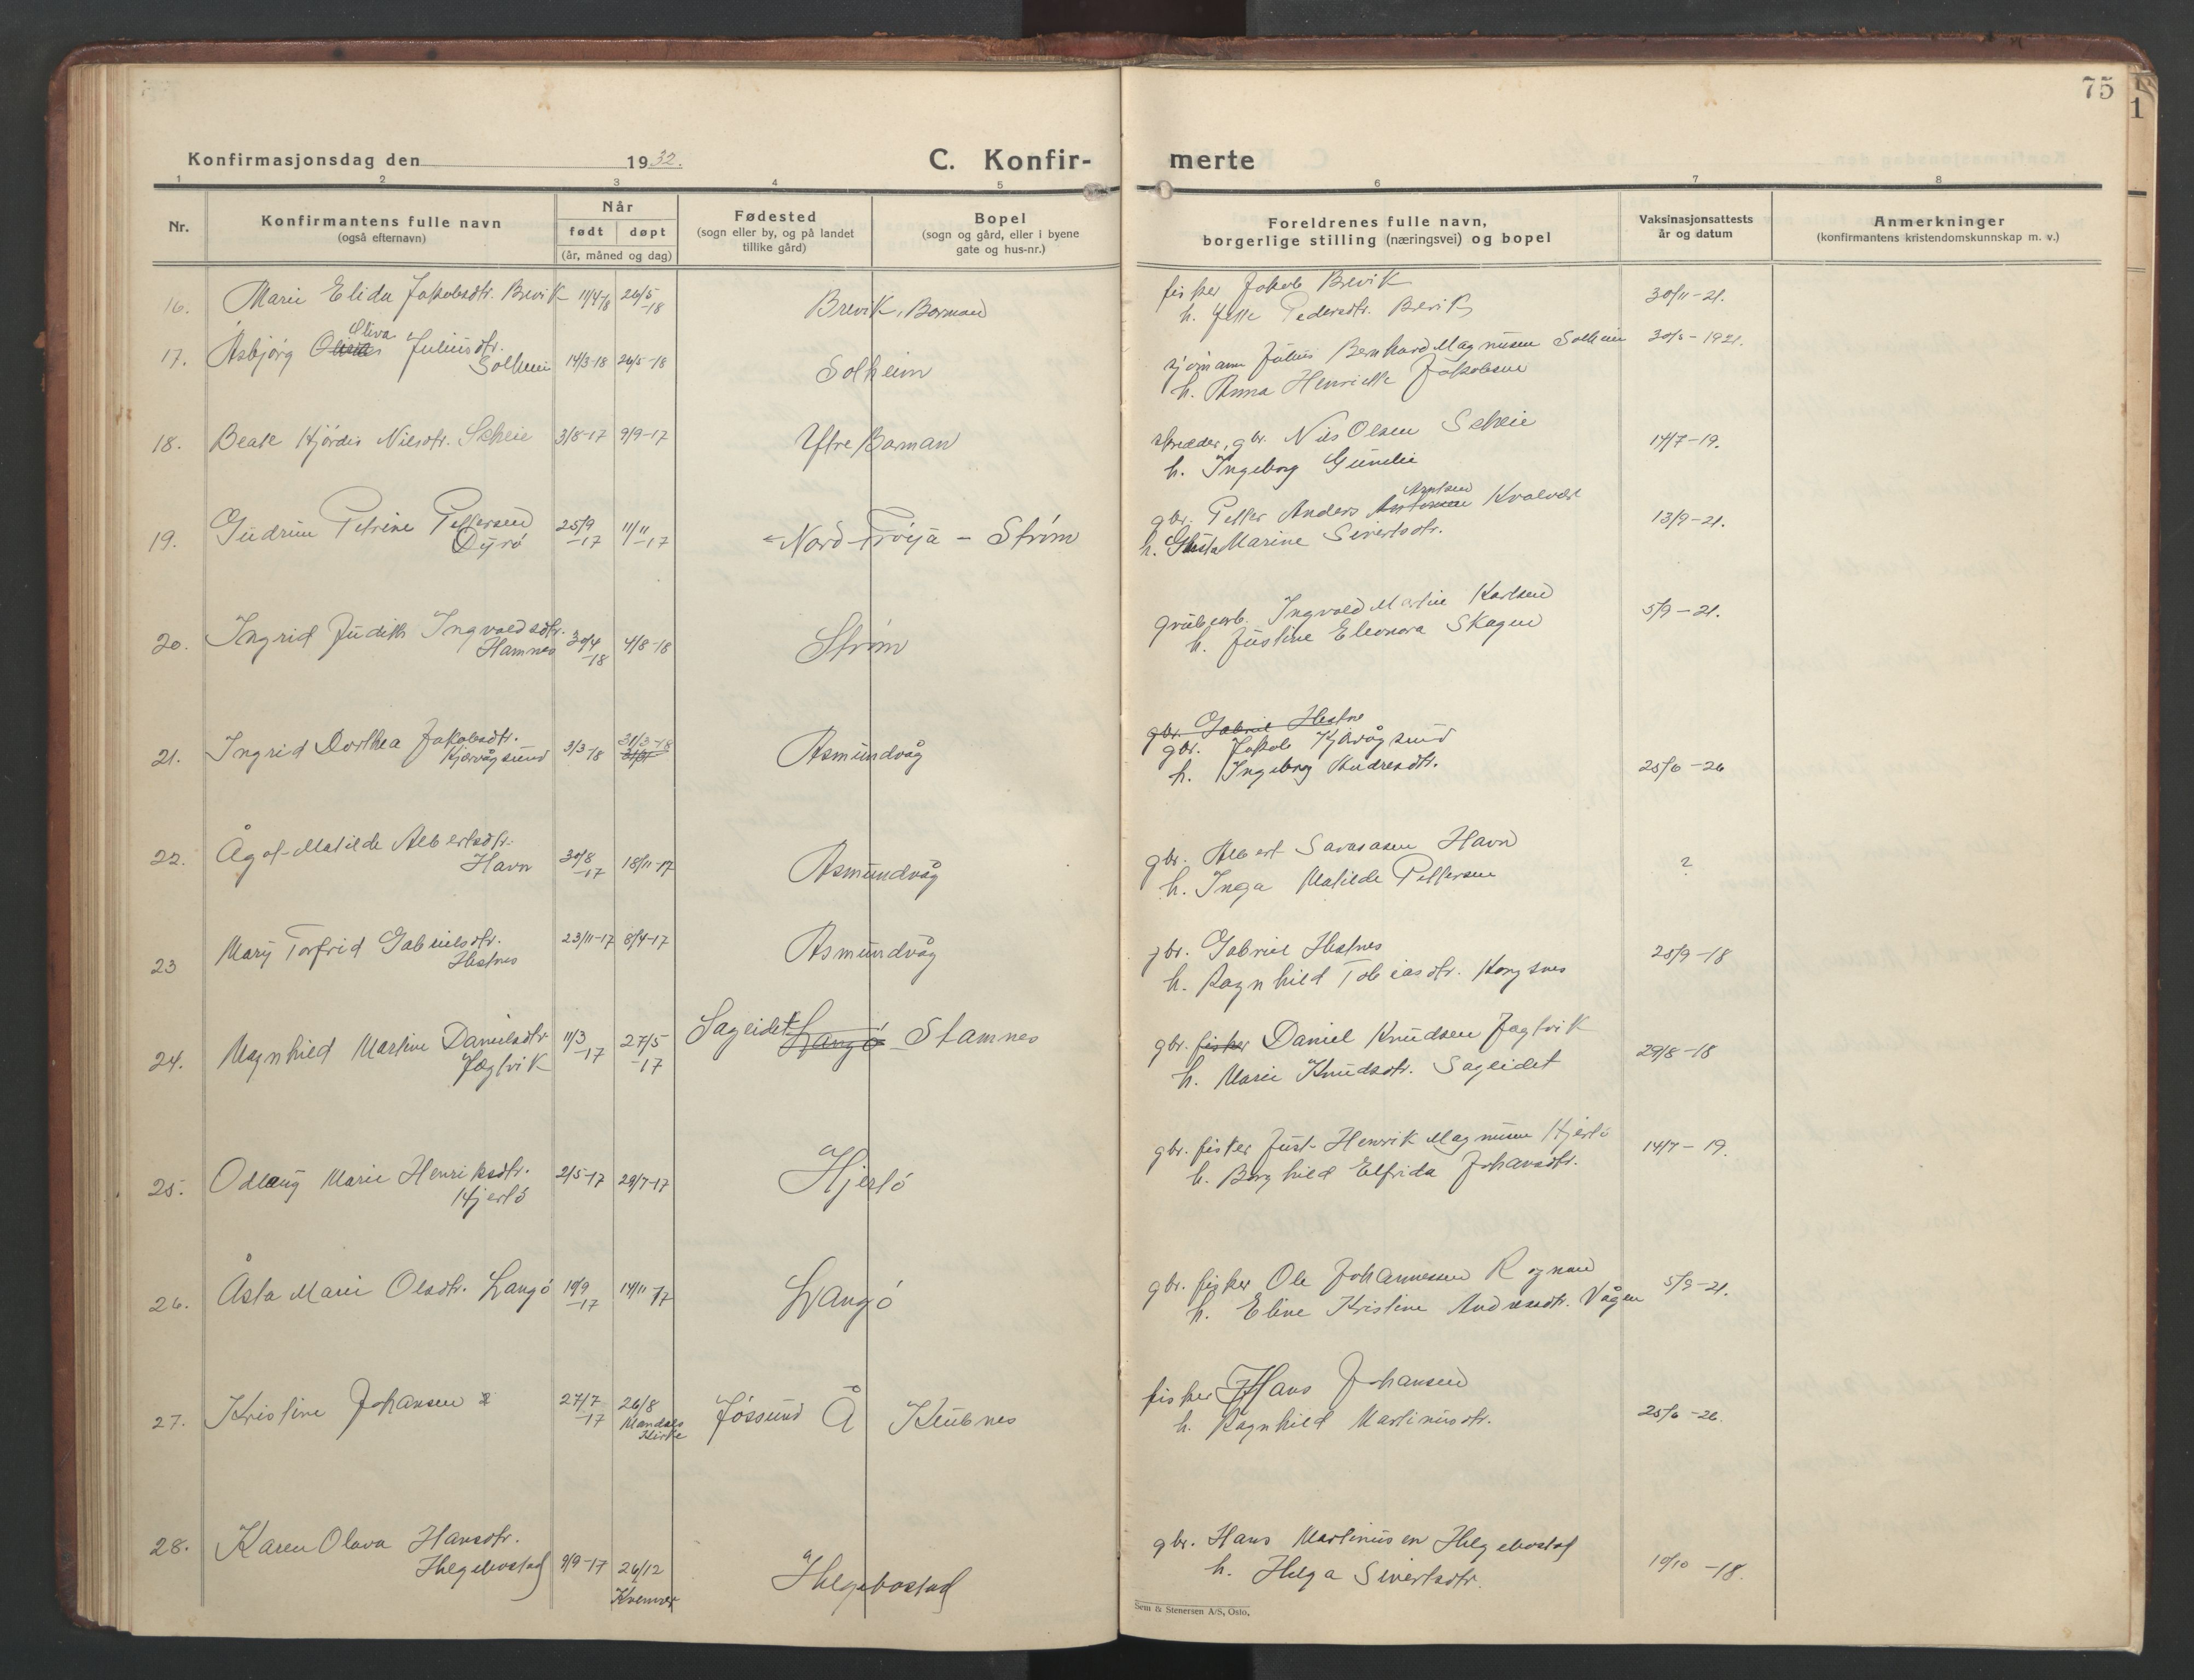 75
1
Konfirmasjonsdag den 1932.
C. Konfir-
merte
1 2 3 4 5 6 7 8
Nr.
Konfirmantens fulle navn
(også efternavn)
Når
født døpt
(år, måned og dag)
Fødested
(sogn eller by, og på landet
tillike gård)
Bopel
(sogn og gård, eller i byene
gate og hus-nr.)
Foreldrenes fulle navn,
borgerlige stilling (næringsvei) og bopel
Vaksinasjonsattests
år og datum
Anmerkninger
(konfirmantens kristendomskunnskap m. v.)
16. Marie Elida Jakobsdtr. Brevik 11/4-18 26/5-18 Brevik, Borman fisker Jakob Brevik 30/11-21.
h. Jette Pedersdtr. Brevik
Oliva
17. Asbjørg Juliusdtr. Solheim 14/3-18 26/5-18 Solheim sjømann Julius Bernhard Magnusen Solheim 30/5-1921.
h. Anna Henriette Jakobsen
18. Beate Hjørdis Nilsdtr. Scheie 3/8-17 9/9-17 Yttre Borman skredder, gbr. Nils Olsen Scheie 14/7-19.
h. Ingeborg
19. Gudrun Petrine Pettersen 25/9-17 11/11-17 Nord-Fröya - Strøm gbr. Petter Anders Arntsen Kvalvær 13/9-21.
Dyrø h. Marine Sivertsdtr.
20. Ingrid Judith Ingvaldsdtr. Hamnes 30/4-18 4/8-18 Strøm grubearb. Ingvald Martin Karlsen 5/9-21.
h. Justine Eleonora Skagen
gbr. Gabriel Hestne
21. Ingrid Dorthea Jakobsdtr. Kjervågsund 3/3-18 31/3-18 Asmundvåg gbr. Jakob Kjervågsund
h. Ingeborg Andresdtr. 25/6-26
22. Ågot Matilde Albertsdtr. Havn 30/8-17 18/11-17 Asmundvåg gbr. Albert Havn ?
h. Inga Matilde Pettersen
23 Mary Torfrid Gabrielsdtr. Hestnes 23/11-17 8/4-17 Asmundvåg gbr. Gabriel Hestnes 25/9-18
h. Ragnhild Tobiasdtr. Kongsnes
24. Magnhild Martine Danielsdtr Jøgtvik 11/3-17 27/5-17 Sageidet Langö - Stamnes gbr. fisker Daniel Knudsen Jøgtvik 29/8-18
h. Marie Knudsdtr. Sageidet
25. Odlaug Marie Henriksdtr. Hjertö 2/5-17 29/7-17 Hjertö gbr. fisker Just Henrik Magnusen Hjertö 14/7-19.
h. Borghild Elfrida Johansdtr.
26. Åsta Marie Olsdtr. Langö 19/9-17 14/11-17 Langö gbr. fisker Ole Johannessen 5/9-21.
h. Eline Kristine Andresdtr. Vågen
27. Kristine Johansen 27/7-17 26/8 Mandals Kirke Jössund Å Klubnes fisker Hans Johansen 25/6-26.
h. Ragnhild Martinusdtr.
28. Karen Olava Hansdtr. Helgebostad 9/9-17 26/12 Kvenvær Helgebostad gbr. Hans Martinusen Helgebostad
h. Helga Sivertsdtr. 10/10-18.
Sem & Stenersen A/S, Oslo.